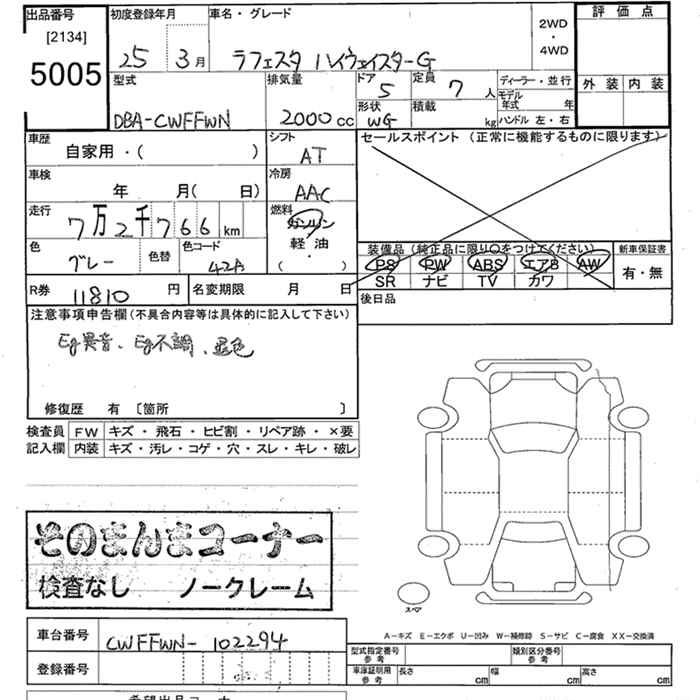 出品番号
[2134]
5005
初度登録年月
25 3月
車名・グレード
ラフェスタ ハイウェイスターG
2WD
・
4WD
評価点
外装 内装
型式
DBA-CWFFWN
排気量
2000cc
ドア
5
形状
WG
定員
7人
積載
kg
ディーラー・並行
モデル年式 年
ハンドル 左・右
車歴
自家用・( )
シフト
AT
セールスポイント (正常に機能するものに限ります)
車検
年 月( 日)
冷房
AAC
走行
7万2千766km
燃料
ガソリン
・
軽油
・
( )
色
グレー
色替
色コード
42A
装備品 (純正品に限り○をつけてください)
PS PW ABS エアB AW
SR ナビ TV カワ
新車保証書
有・無
R券
11810円
名変期限 月 日
後日品
注意事項申告欄 (不具合内容等は具体的に記入して下さい)
Eg異音、Eg不調、退色
修復歴 有 〔箇所 〕
検査員
記入欄
FW キズ・飛石・ヒビ割・リペア跡・×要
内装 キズ・汚レ・コゲ・穴・スレ・キレ・破レ
そのまんまコーナー
検査なし ノークレーム
スペア
A-キズ E-エクボ U-凹み W-補修跡 S-サビ C-腐食 XX-交換済
車台番号
CWFFWN-102294
登録番号
型式指定番号
参考
類別区分番号
参考
車庫証明用
参考
長さ cm
幅 cm
高さ cm
希望出品コーナー